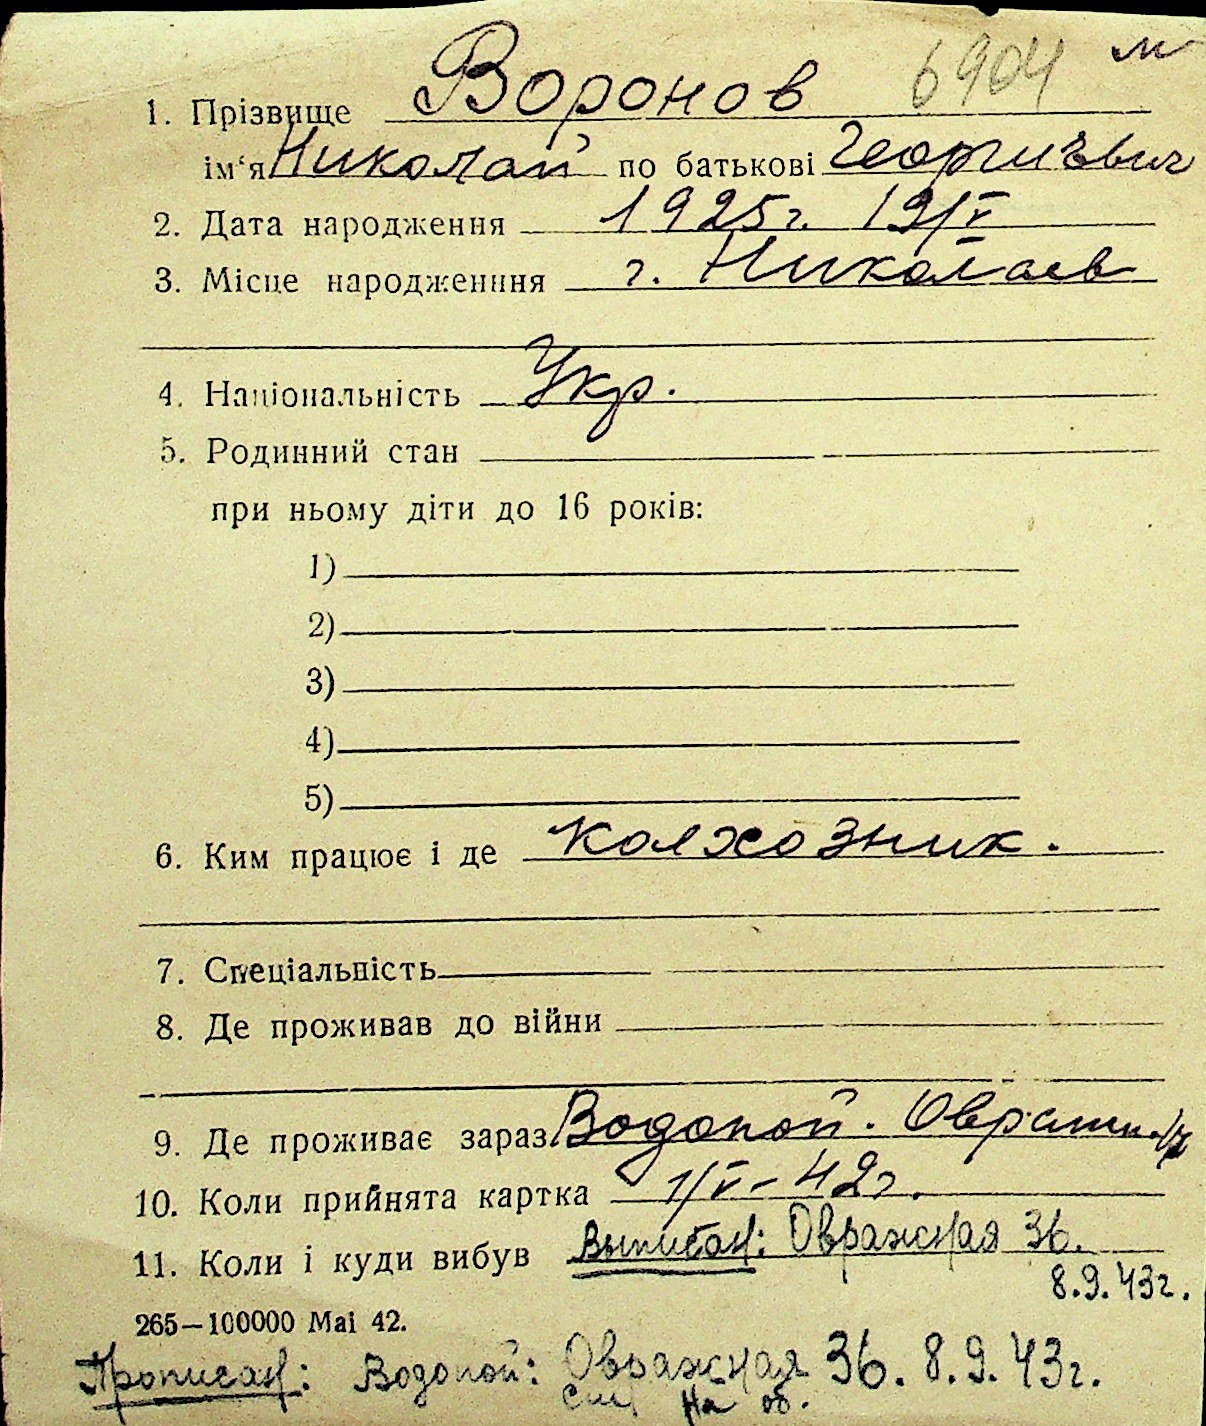 6904 м
1. Прізвище Воронов
ім'я Николай по батькові Георгиевич
2. Дата народження 1925г. 19/V
3. Місце народженння г. Николаев
4. Національність Укр.
5. Родинний стан
при ньому діти до 16 років:
1)
2)
3)
4)
5)
6. Ким працює і де колхозник.
7. Спеціальність
8. Де проживав до війни
9. Де проживає зараз Водопой.
10. Коли прийнята картка 1/V-42г.
11. Коли і куди вибув Выписан: Овражная 36.
8.9.43г.
265—100000 Mai 42.
Прописан: Водопой: Овражная 36. 8.9.43г.
на об.